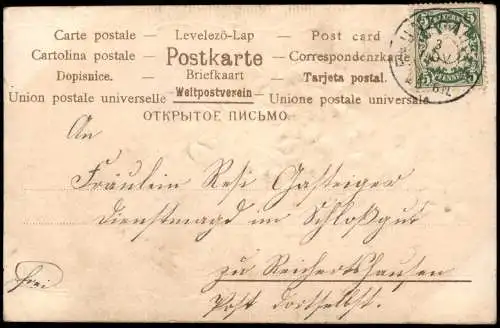 Carte postale – Levelező-Lap – Post card
Cartolina postale – Postkarte – Correspondenzkarte
Dopisnice. – Briefkaart – Tarjeta postal.
Union postale universelle – Weltpostverein – Unione postale universale
ОТКРЫТОЕ ПИСЬМО.
BAYERN
5 5
5 5
PFENNIG
An
Fräulein Resi Gasteiger
Dienstmagd im Schloßgut
zu Reichertshausen
frei
Post dortselbst.